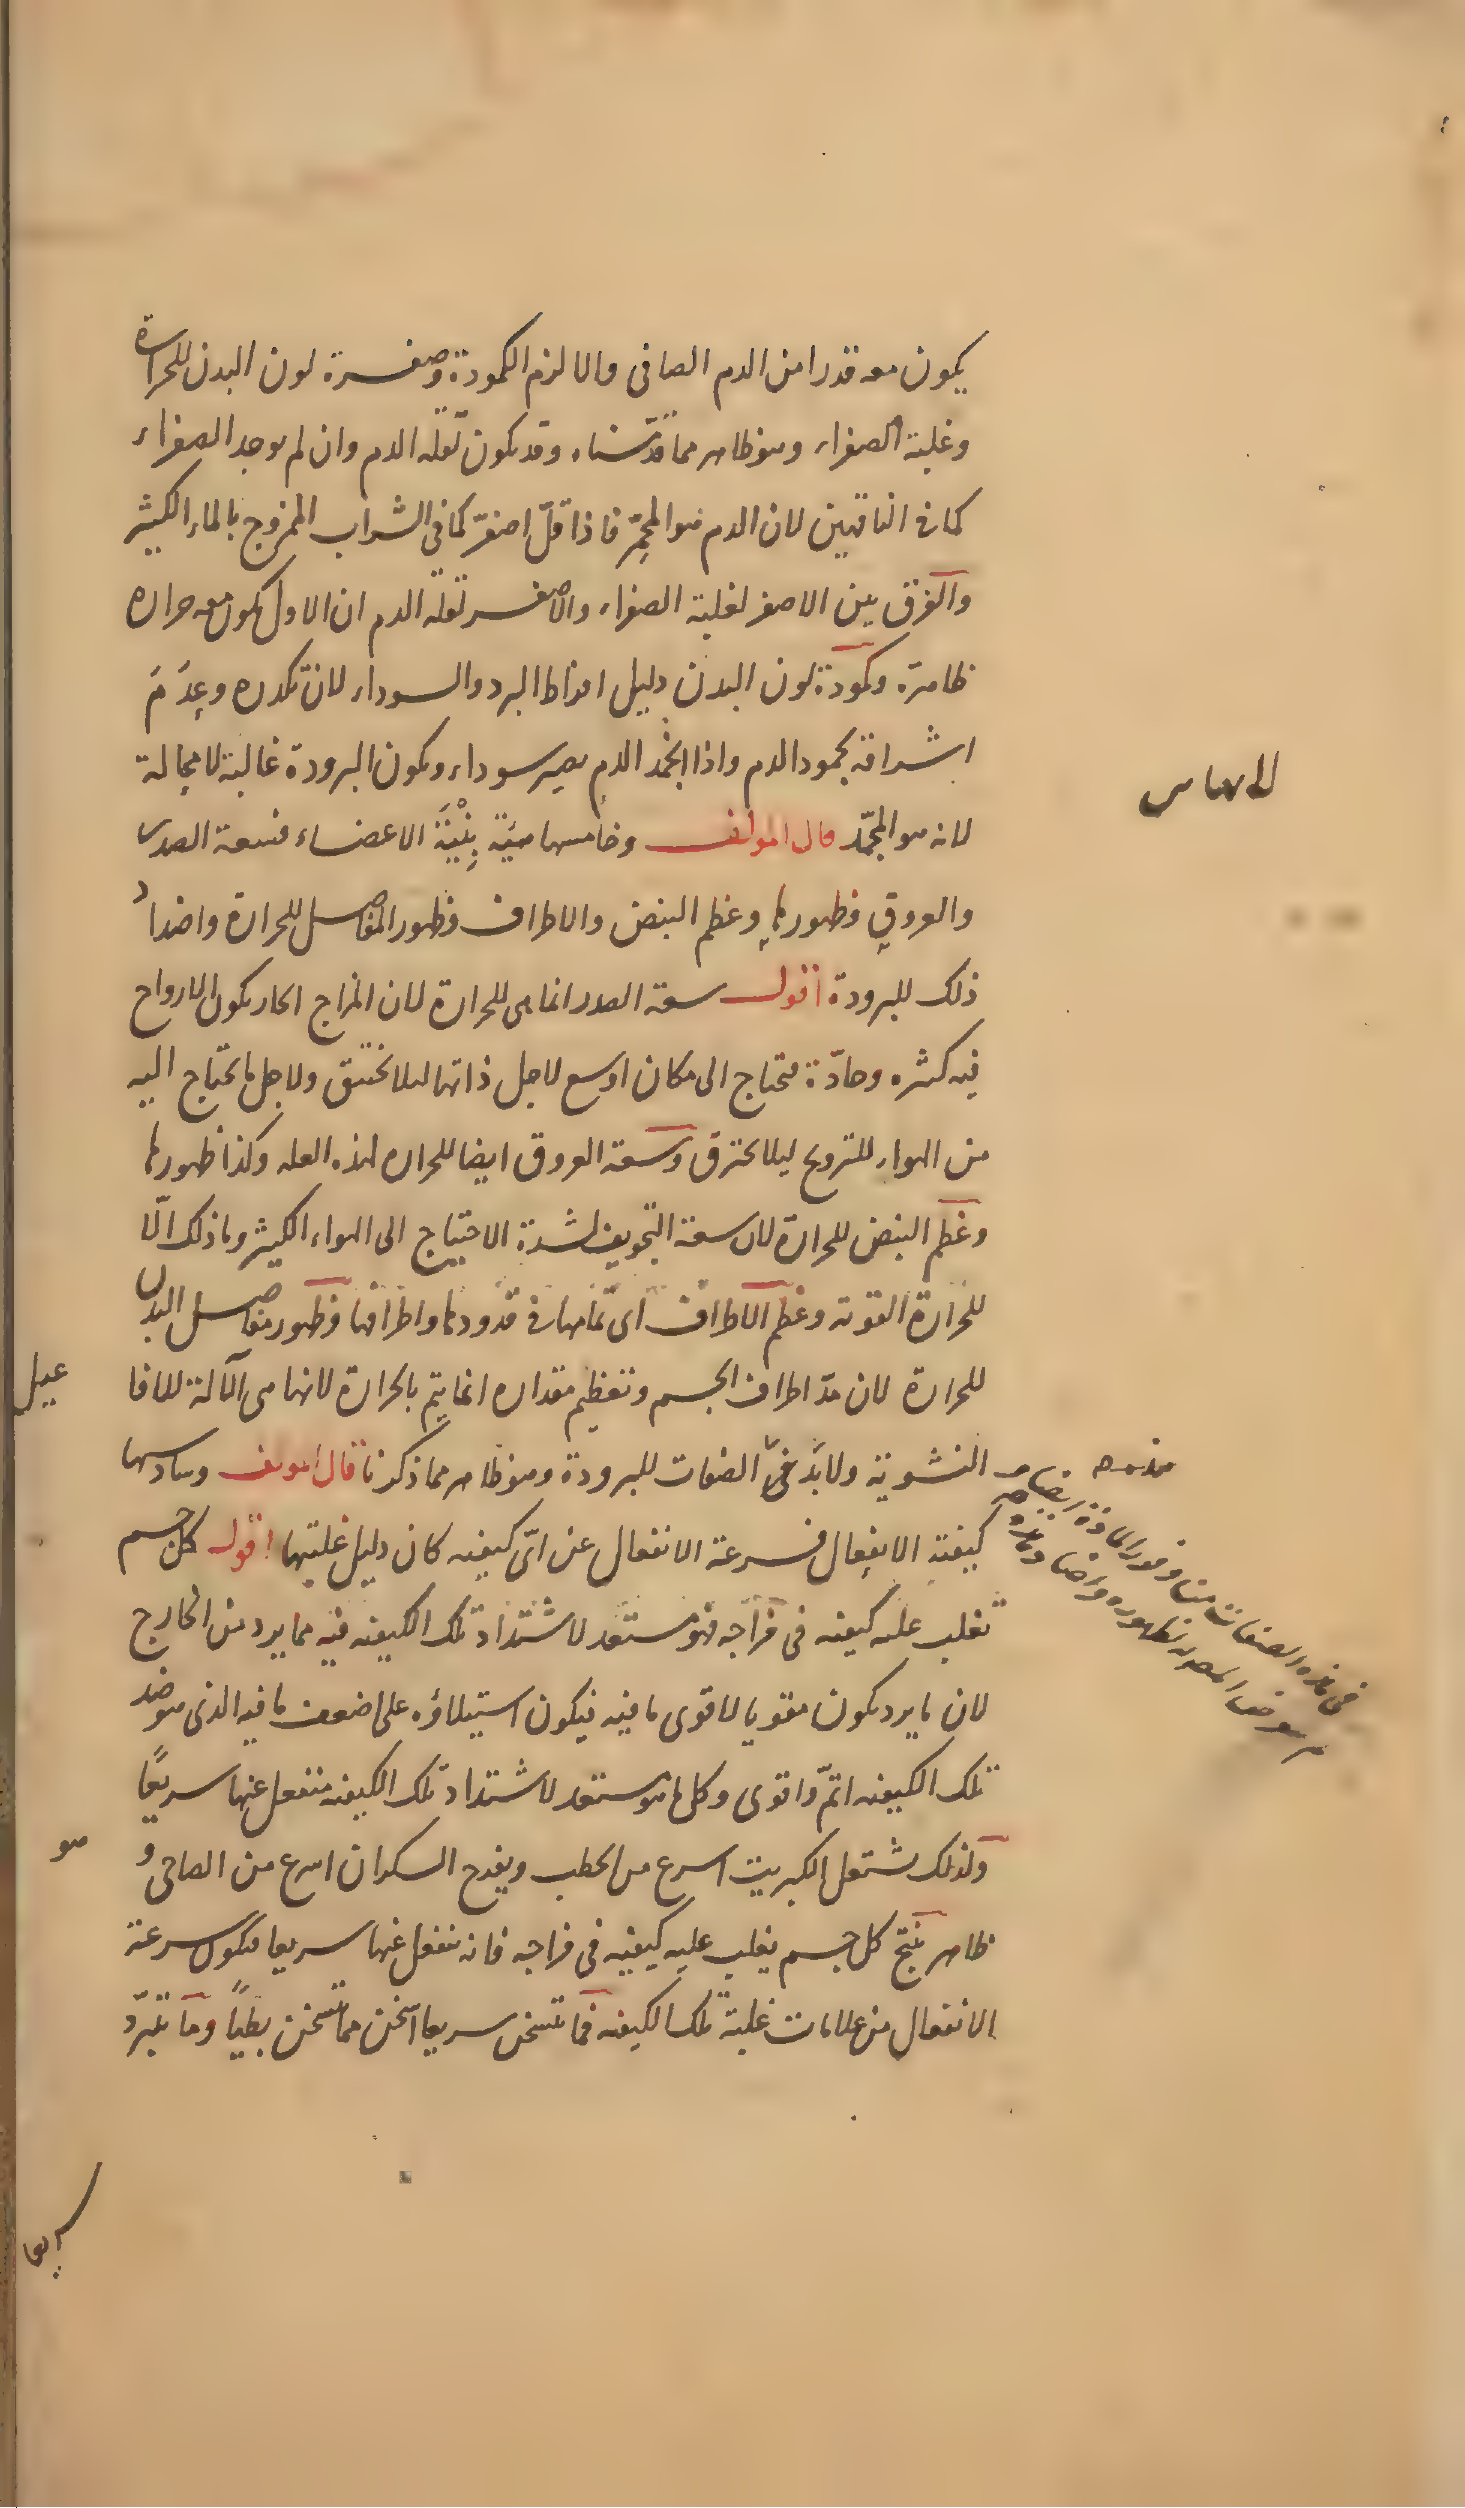 يكون معه قدرا من الدم الصافى والا لزم الكمودة وصفرة لون البدن للحرارة
وغلبة الصفراء وهو ظاهر مما قدمناه وقد يكون لقلة الدم وان لم يوجد الصفراء
كما فى الناقهين لان الدم هو المحمّر فاذا قلّ اصفرّ كما فى الشراب الممزوج بالماء الكثير
والفرق بين الاصفر لغلبة الصفراء والاصفر لقلة الدم ان الاول يكون معه حرارة
ظاهرة وكمودة لون البدن دليل افراط البرد والسوداء لان تكدره وعدم
اشراقه بجمود الدم واذا انجمد الدم يصير سوداء ويكون البرودة غالبة لا محالة
لانه هو المجمّد قال المولف وخامسها هيئة بِنْيَة الاعضاء فسعة الصدر
والعروق وظهورها وعظم النبض والاطراف وظهور المفاصل للحرارة واضداد
ذلك للبرودة اقول سعة الصدر انما هى للحرارة لان المزاج الحار يكون الارواح
فيه كثيره وحادّة فتحتاج الى مكان اوسع لاجل ذاتها لئلا تختنق ولاجل ما تحتاج اليه
من الهواء للترويح ليلا يحترق وسعة العروق ايضا للحرارة لهذه العله وكذا ظهورها
وعظم النبض للحرارة لان سعة التجويف لشدة الاحتياج الى الهواء الكثير وما ذلك الّا
للحرارة القوية وعظم الاطراف اى تمامها فى قدودها واطرافها وظهور مفاصل البدن
للحرارة لان مدّ اطراف الجسم وتعظيم مقداره انما يتم بالحرارة لانها هى الآلة للافا
عيل
النشوية ولابد فى الصفات للبرودة وهو ظاهر مما ذكرنا قال المولف وسادسها
كيفية الانفعال فسرعة الانفعال عن اىّ كيفيه كان دليل غلبتها اقول كل جسم
تغلب عليه كيفيه فى مزاجه فهو مستعد لاشتداد تلك الكيفيه فيه مما يرد من الخارج
لان ما يرد يكون مقويا لاقوى ما فيه فيكون استيلاؤه على اضعف ما فيه الذى هو ضد
تلك الكيفيه اتمّ واقوى وكل ما هو مستعد لاشتداد تلك الكيفيه منفعل عنها سريعًا
ولذلك يشتعل الكبريت اسرع من الحطب ويفدح السكران اسرع من الصاحى و
هو
ظاهر ينتج كل جسم يغلب عليه كيفيه فى مزاجه فانه ينفعل عنها سريعا فيكون سرعة
الانفعال من علامات غلبة تلك الكيفيه فما تسخن سريعا اسخن مما تسخن بطيًا وما تبرّد